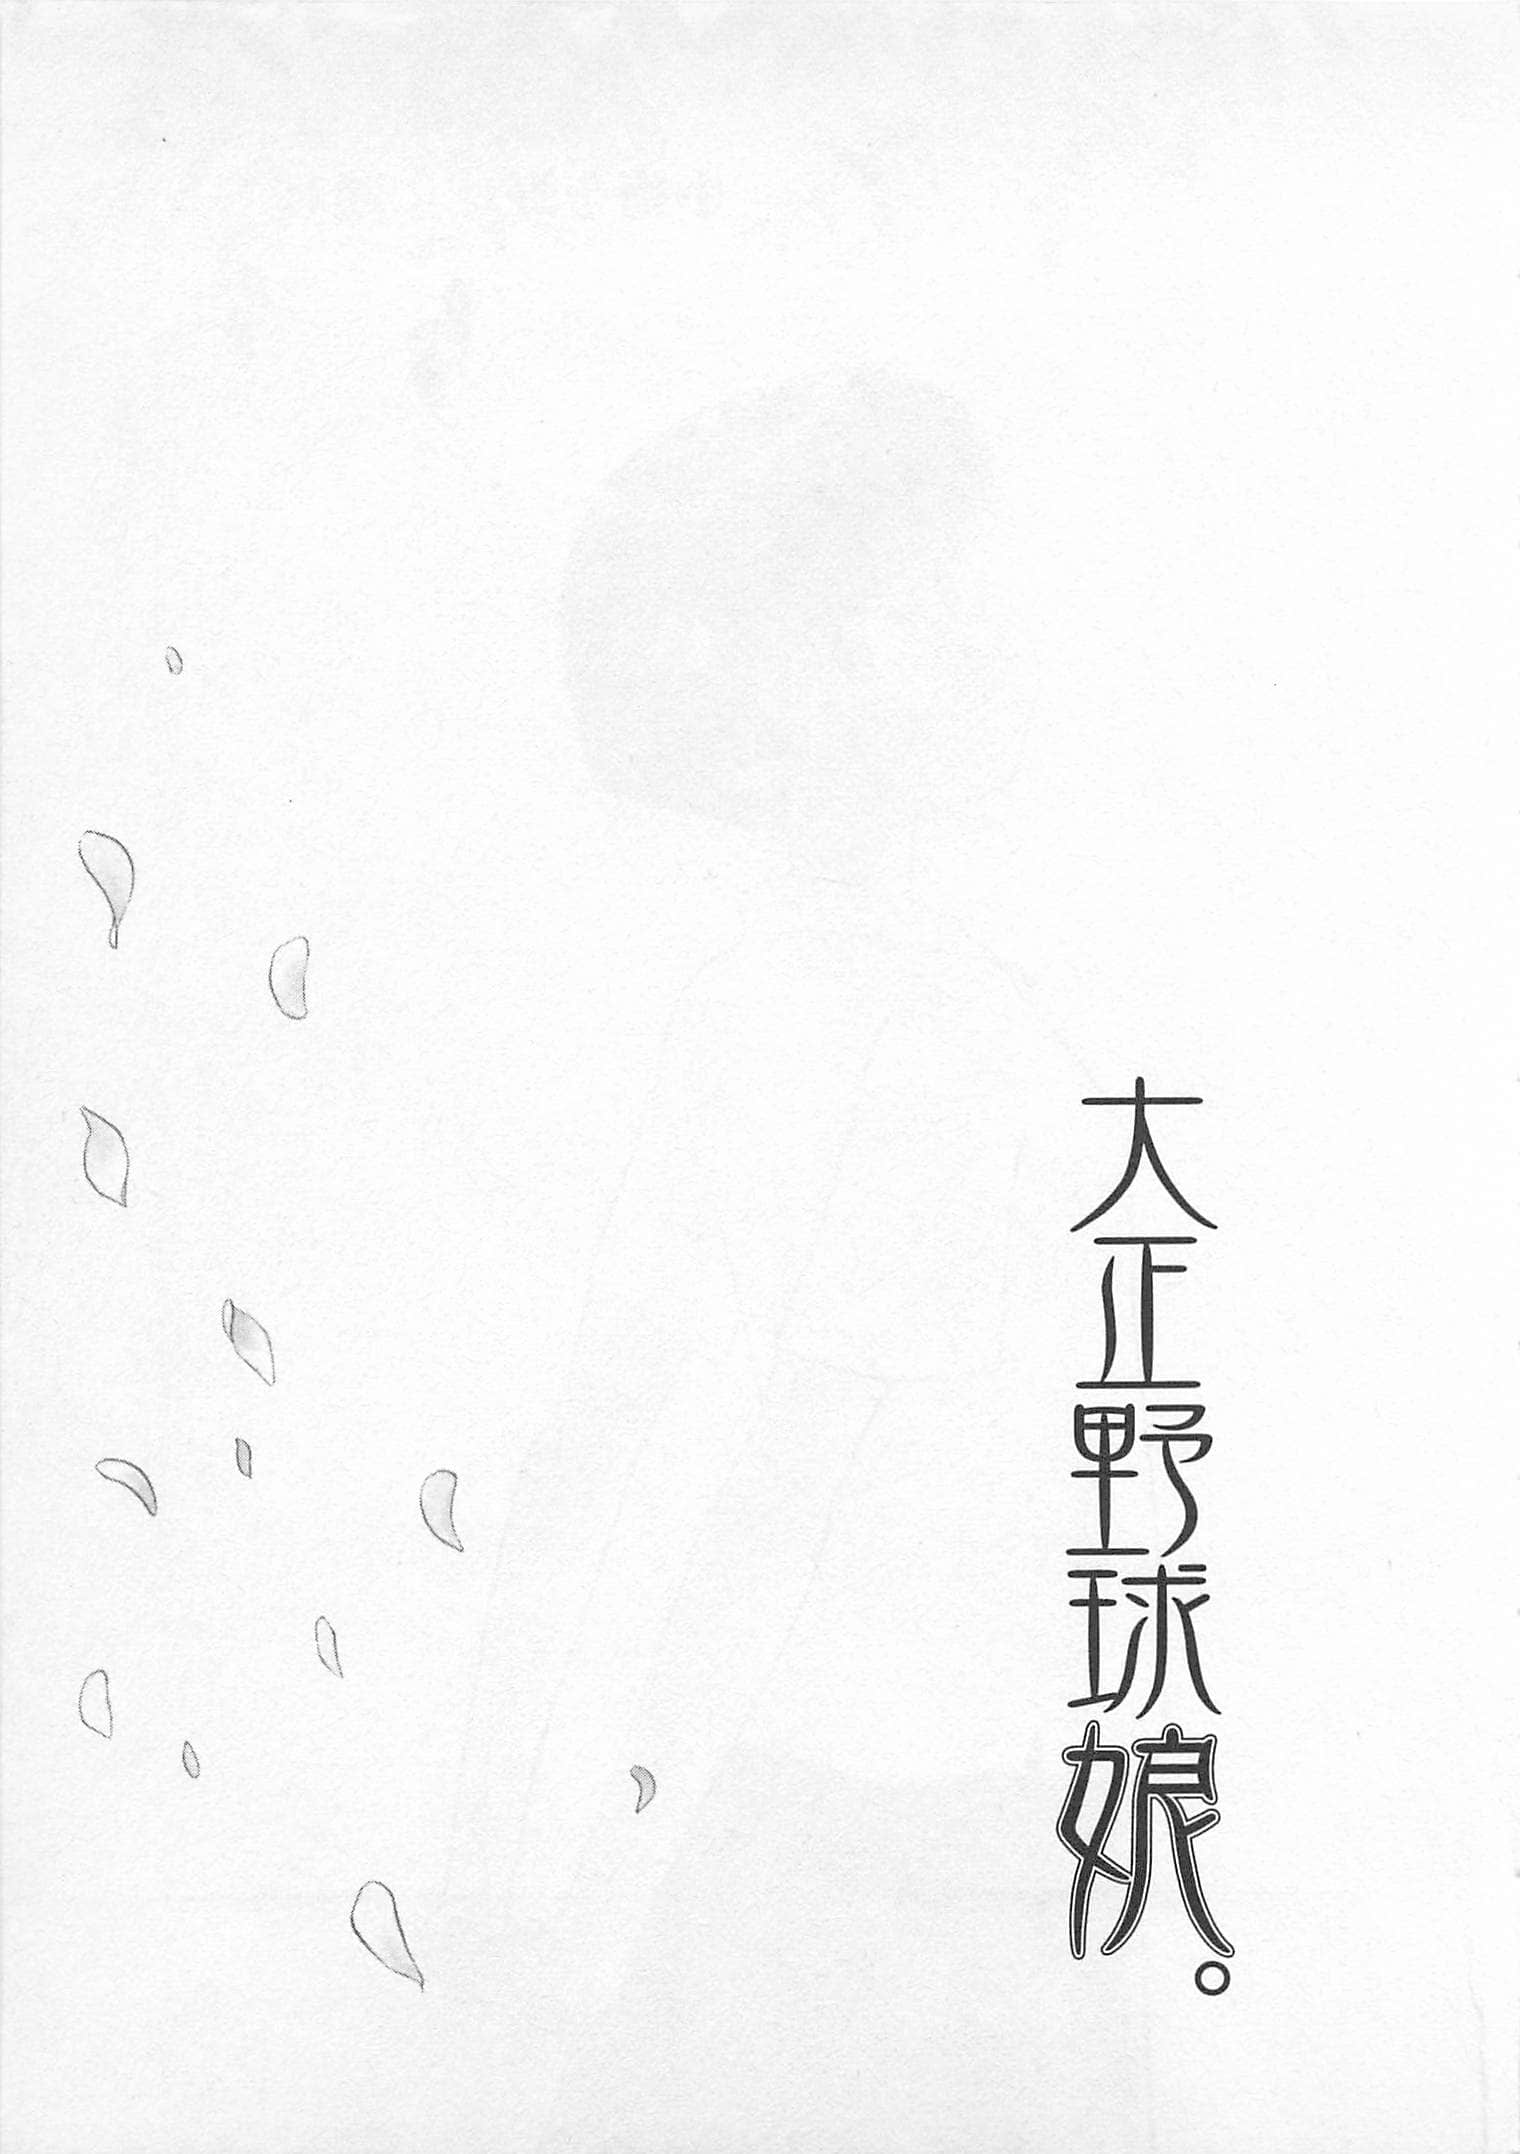 大正野球娘。